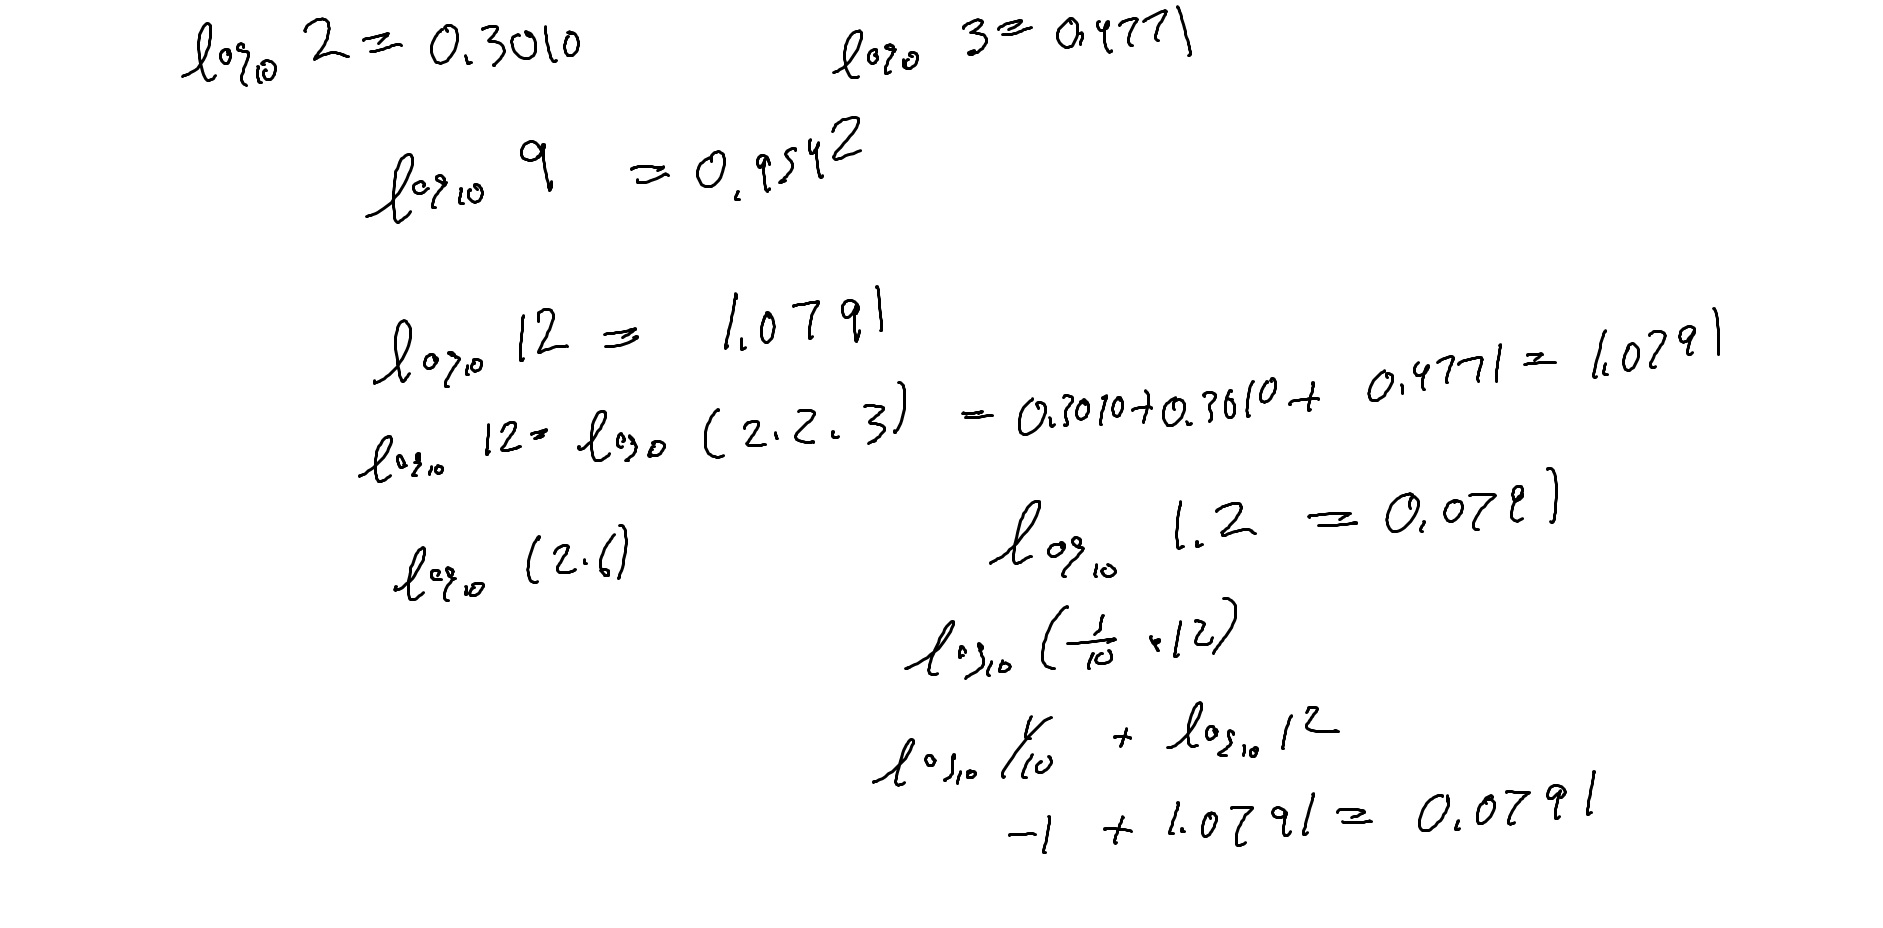 log₁₀ 2 = 0.3010 log₁₀ 3 = 0.4771
log₁₀ 9 = 0.9542
log₁₀ 12 = 1.0791
log₁₀ 12 = log₁₀ (2.2.3) = 0.3010+0.3010+ 0.4771 = 1.0791
log₁₀ (2.6) log₁₀ 1.2 = 0.0791
log₁₀ (1/10 · 12)
log₁₀ 1/10 + log₁₀ 12
-1 + 1.0791 = 0.0791